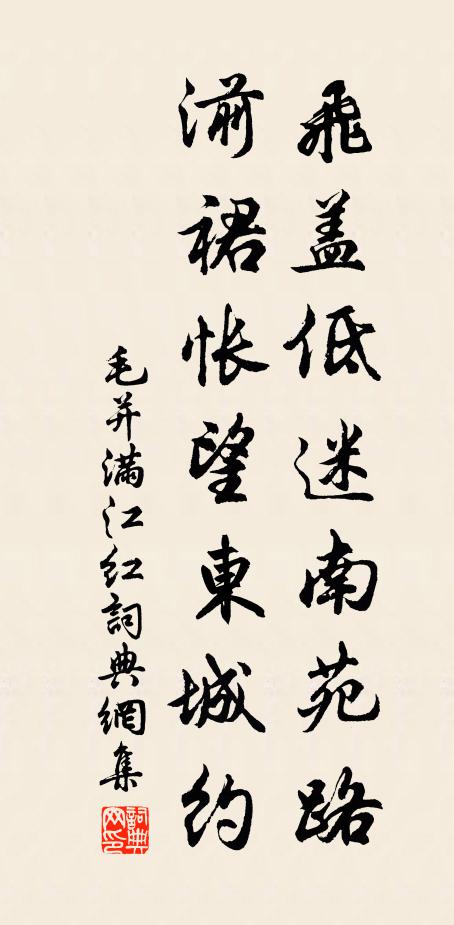 飛蓋低迷南苑路
湔裙悵望東城約
毛并滿江红詞典網集
詞典网印